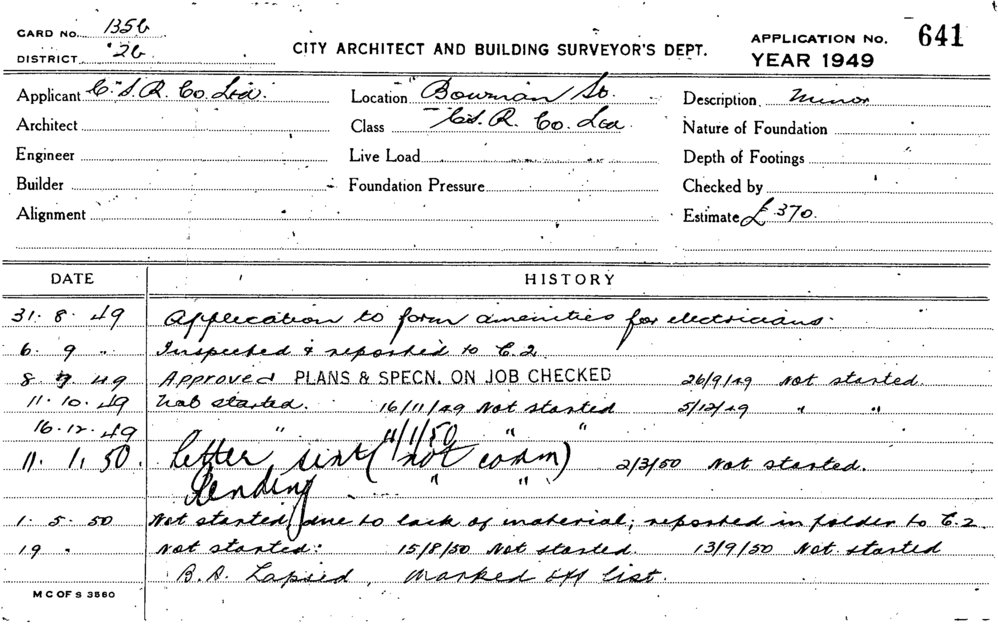 CARD No. B5b
DISTRICT '26
CITY ARCHITECT AND BUILDING SURVEYOR'S DEPT.
APPLICATION No. 641
YEAR 1949
Applicant C.S.R. Co. Ltd.
Location Bowman St.
Description Minor
Architect
Class C.S.R. Co. Ltd.
Nature of Foundation
Engineer
Live Load
Depth of Footings
Builder
Foundation Pressure
Checked by
Alignment
Estimate £370.
DATE HISTORY
31. 8. 49 Application to form amenities for electricians.
6. 9 " Inspected & reported to C.2.
8 9. 49 Approved PLANS & SPECN. ON JOB CHECKED 26/9/49 Not started.
11. 10. 49 Not started. 16/11/49 Not started 5/12/49 " "
16. 12. 49 " 11/1/50 " "
11. 1. 50. Letter sent (not comm) 2/3/50 Not started.
Pending " "
1. 5. 50 Not started, due to lack of material; reported in folder to C.2.
19 " Not started: 15/8/50 Not started. 13/9/50 Not started
B.A. Lapsed, Marked off list.
M C OF S 3560